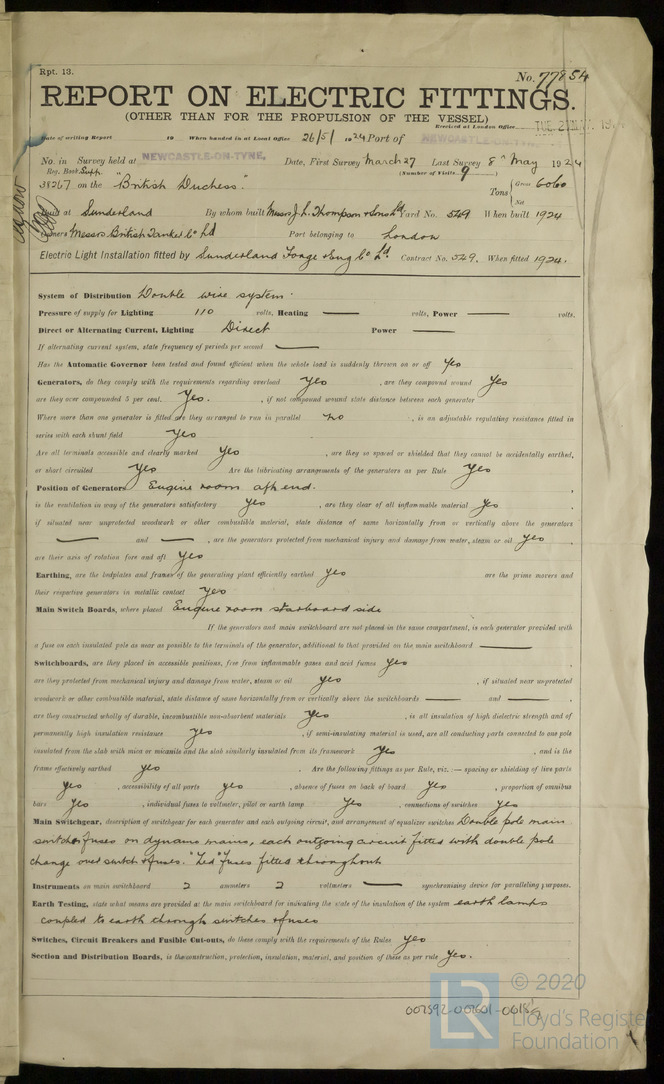 Rpt. 13.
No. 77954
REPORT ON ELECTRIC FITTINGS.
(OTHER THAN FOR THE PROPULSION OF THE VESSEL)
Received at London Office
Date of writing Report 19 When handed in at Local Office 26/5/1924 Port of NEWCASTLE-ON-TYNE.
No. in Survey held at NEWCASTLE-ON-TYNE. Date, First Survey March 27 Last Survey 8th May 1924
Reg. Book Supp. (Number of Visits 9)
38267 on the "British Duchess". Tons { Gross 6060
Net
Built at Sunderland By whom built Messrs J. L. Thompson & Sons Ld Yard No. 529 When built 1924
Owners Messrs British Tanker Co Ld Port belonging to London
Electric Light Installation fitted by Sunderland Forge & Eng Co Ld. Contract No. 529. When fitted 1924.
System of Distribution Double wire system.
Pressure of supply for Lighting 110 volts, Heating — volts, Power — volts.
Direct or Alternating Current, Lighting Direct Power —
If alternating current system, state frequency of periods per second —
Has the Automatic Governor been tested and found efficient when the whole load is suddenly thrown on or off Yes
Generators, do they comply with the requirements regarding overload Yes, are they compound wound Yes
are they over compounded 5 per cent. Yes., if not compound wound state distance between each generator
Where more than one generator is fitted are they arranged to run in parallel no, is an adjustable regulating resistance fitted in
series with each shunt field Yes
Are all terminals accessible and clearly marked Yes, are they so spaced or shielded that they cannot be accidentally earthed,
or short circuited Yes Are the lubricating arrangements of the generators as per Rule Yes
Position of Generators Engine room aft end.
is the ventilation in way of the generators satisfactory Yes, are they clear of all inflammable material Yes.
if situated near unprotected woodwork or other combustible material, state distance of same horizontally from or vertically above the generators
— and —, are the generators protected from mechanical injury and damage from water, steam or oil Yes,
are their axis of rotation fore and aft Yes
Earthing, are the bedplates and frames of the generating plant efficiently earthed Yes are the prime movers and
their respective generators in metallic contact Yes
Main Switch Boards, where placed Engine room starboard side
If the generators and main switchboard are not placed in the same compartment, is each generator provided with
a fuse on each insulated pole as near as possible to the terminals of the generator, additional to that provided on the main switchboard —
Switchboards, are they placed in accessible positions, free from inflammable gases and acid fumes Yes,
are they protected from mechanical injury and damage from water, steam or oil Yes, if situated near unprotected
woodwork or other combustible material, state distance of same horizontally from or vertically above the switchboards — and —,
are they constructed wholly of durable, incombustible non-absorbent materials Yes, is all insulation of high dielectric strength and of
permanently high insulation resistance Yes, if semi-insulating material is used, are all conducting parts connected to one pole
insulated from the slab with mica or micanite and the slab similarly insulated from its framework Yes, and is the
frame effectively earthed Yes. Are the following fittings as per Rule, viz. :— spacing or shielding of live parts
Yes, accessibility of all parts Yes, absence of fuses on back of board Yes, proportion of omnibus
bars Yes, individual fuses to voltmeter, pilot or earth lamp Yes, connections of switches Yes
Main Switchgear, description of switchgear for each generator and each outgoing circuit, and arrangement of equalizer switches Double pole main
switch & fuses on dynamo mains, each outgoing circuit fitted with double pole
change over switch & fuses. "Zed" fuses fitted throughout
Instruments on main switchboard 2 ammeters 2 voltmeters — synchronising device for paralleling purposes.
Earth Testing, state what means are provided at the main switchboard for indicating the state of the insulation of the system earth lamps
coupled to earth through switches & fuses
Switches, Circuit Breakers and Fusible Cut-outs, do these comply with the requirements of the Rules Yes
Section and Distribution Boards, is the construction, protection, insulation, material, and position of these as per rule Yes.
LR
© 2020
Lloyd's Register
Foundation